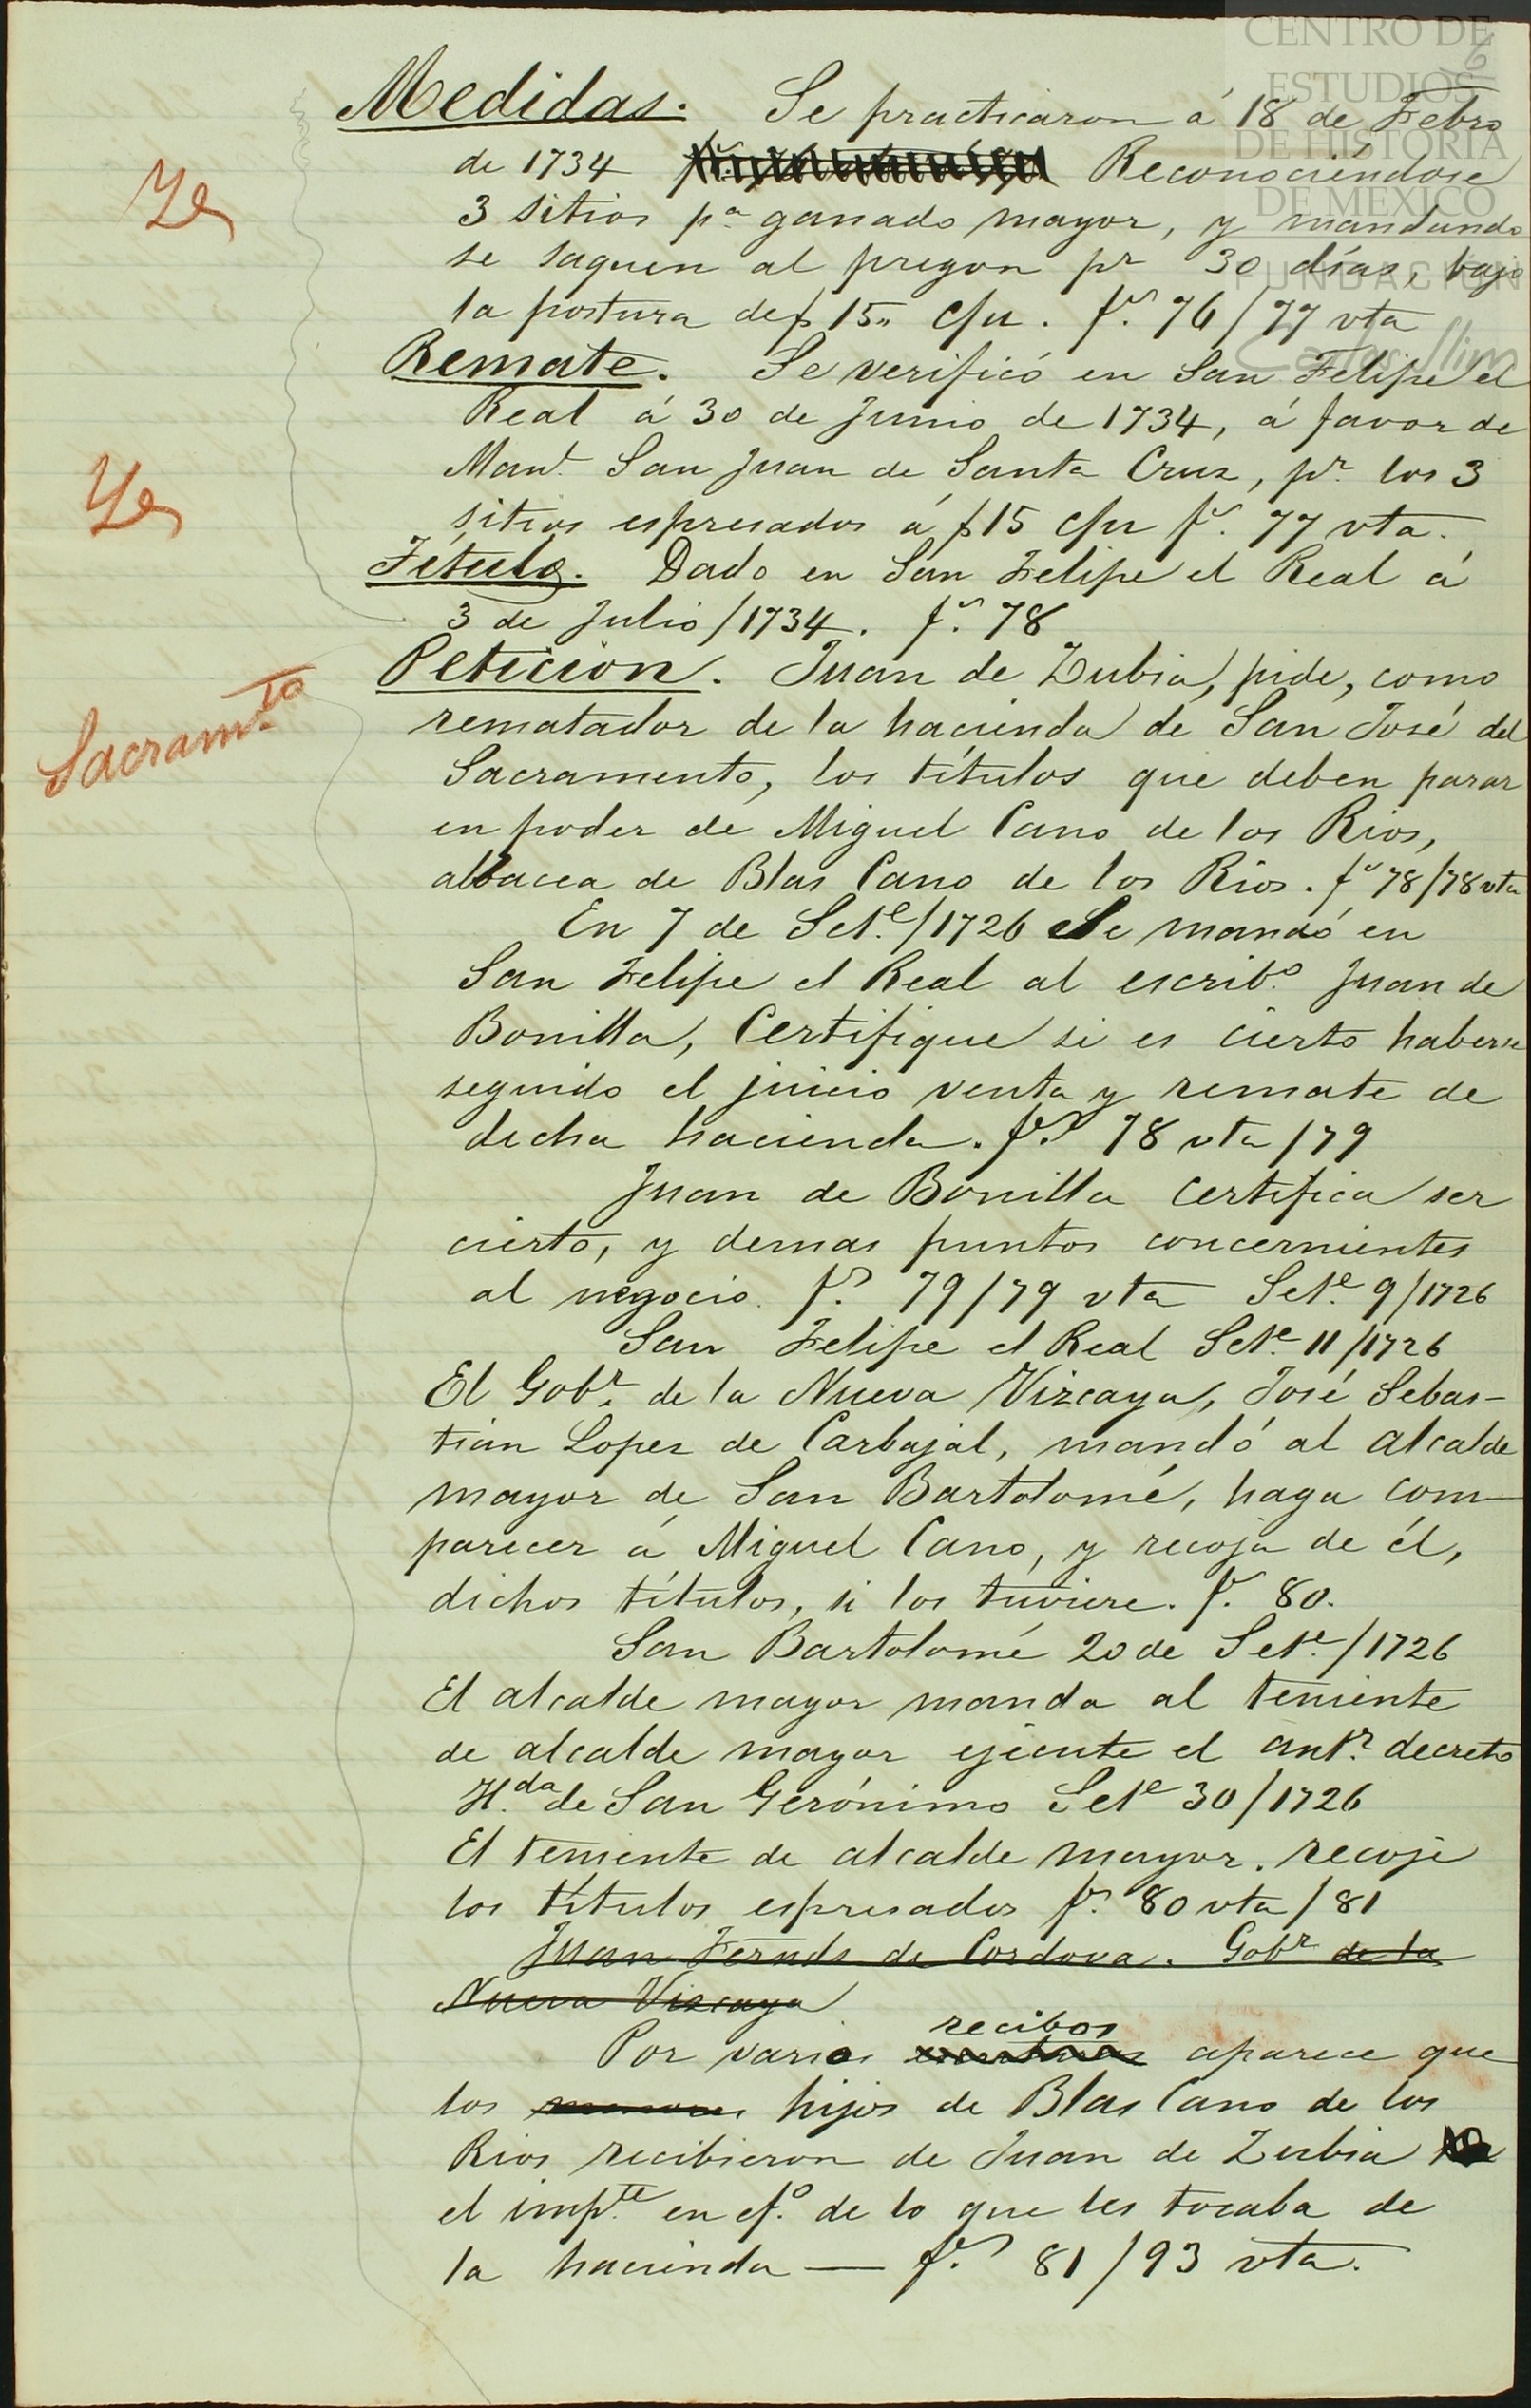 CENTRO DE
ESTUDIOS
DE HISTORIA
DE MÉXICO
FUNDACIÓN
Carlos Slim
6
Medidas. Se practicaron á 18 de Febro
de 1734 Reconociéndose
3 sitios pª ganado mayor, y mandando
se saquen al pregon pr 30 días, bajo
la postura de $ 15 c/u. fs. 76/77 vta
Ye
Remate. Se verificó en San Felipe el
Real á 30 de Junio de 1734, á favor de
Manl. San Juan de Santa Cruz, pr. los 3
sitios espresados á $15 c/u fs. 77 vta.
Ye
Título. Dado en San Felipe el Real á
3 de Julio/1734. fs. 78
Sacramto
Peticion. Juan de Zubia, pide, como
rematador de la hacienda de San José del
Sacramento, los títulos que deben parar
en poder de Miguel Cano de los Rios,
albacea de Blas Cano de los Rios. fs 78/78 vta
En 7 de Sete./1726 Se mandó en
San Felipe el Real al escribo. Juan de
Bonilla, Certifique si es cierto haberse
seguido el juicio venta y remate de
dicha hacienda. fs. 78 vta/79
Juan de Bonilla certifica ser
cierto, y demas puntos concernientes
al negocio. fs. 79/79 vta Sete. 9/1726
San Felipe el Real Sete. 11/1726
El Gobr. de la Nueva Vizcaya, José Sebas-
tian Lopez de Carbajal, mandó al alcalde
mayor de San Bartolomé, haga com-
parecer á Miguel Cano, y recoja de él,
dichos títulos, si los tuviere. fs. 80.
San Bartolomé 20 de Sete./1726
El alcalde mayor manda al teniente
de alcalde mayor ejecute el antr. decreto
H.da de San Gerónimo Sete 30/1726
El teniente de alcalde mayor. recoje
los títulos espresados fs. 80 vta/81
Juan Fernds de Cordova. Gobr de la
Nueva Vizcaya
recibos
Por varios aparece que
los hijos de Blas Cano de los
Rios recibieron de Juan de Zubia
el impte. en efo. de lo que les tocaba de
la hacienda — fs. 81/93 vta.